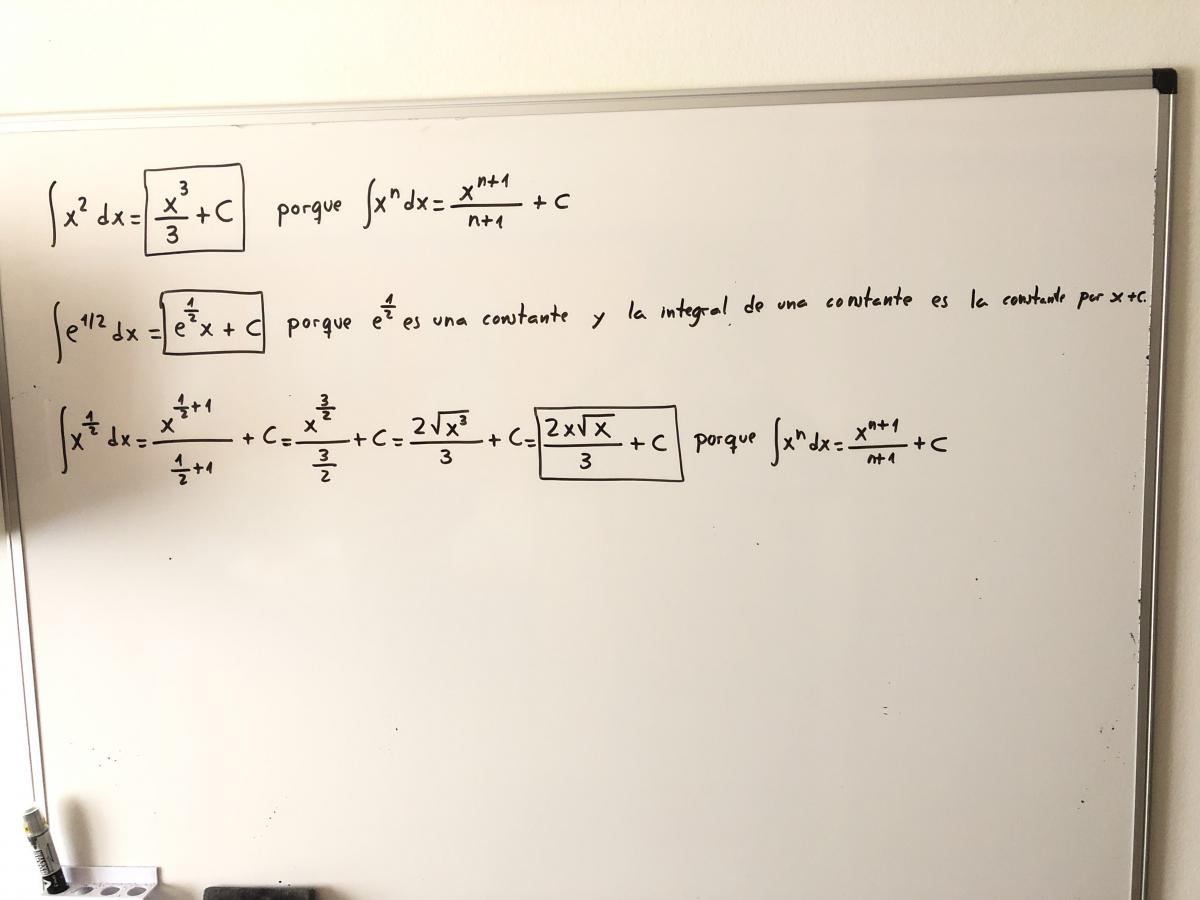 ∫x² dx = x³/3 + C porque ∫xⁿ dx = xⁿ⁺¹/n+1 + C
∫e^1/2 dx = e^(1/2) x + C porque e^(1/2) es una constante y la integral de una constante es la constante por x + C.
∫x^(1/2) dx = x^(1/2+1)/(1/2+1) + C = x^(3/2)/(3/2) + C = 2√x³/3 + C = 2x√x/3 + C porque ∫xⁿ dx = xⁿ⁺¹/n+1 + C